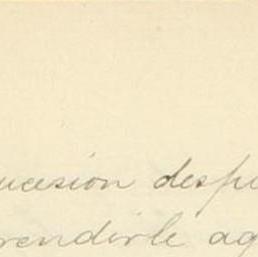 ucesión despu
rendirle ag